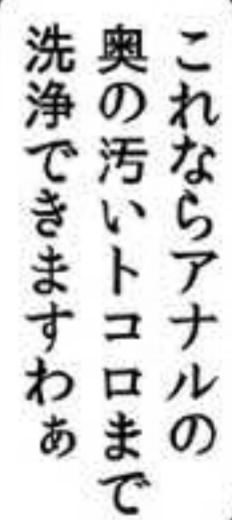 これならアナルの
奥の汚いトコロまで
洗浄できますわぁ